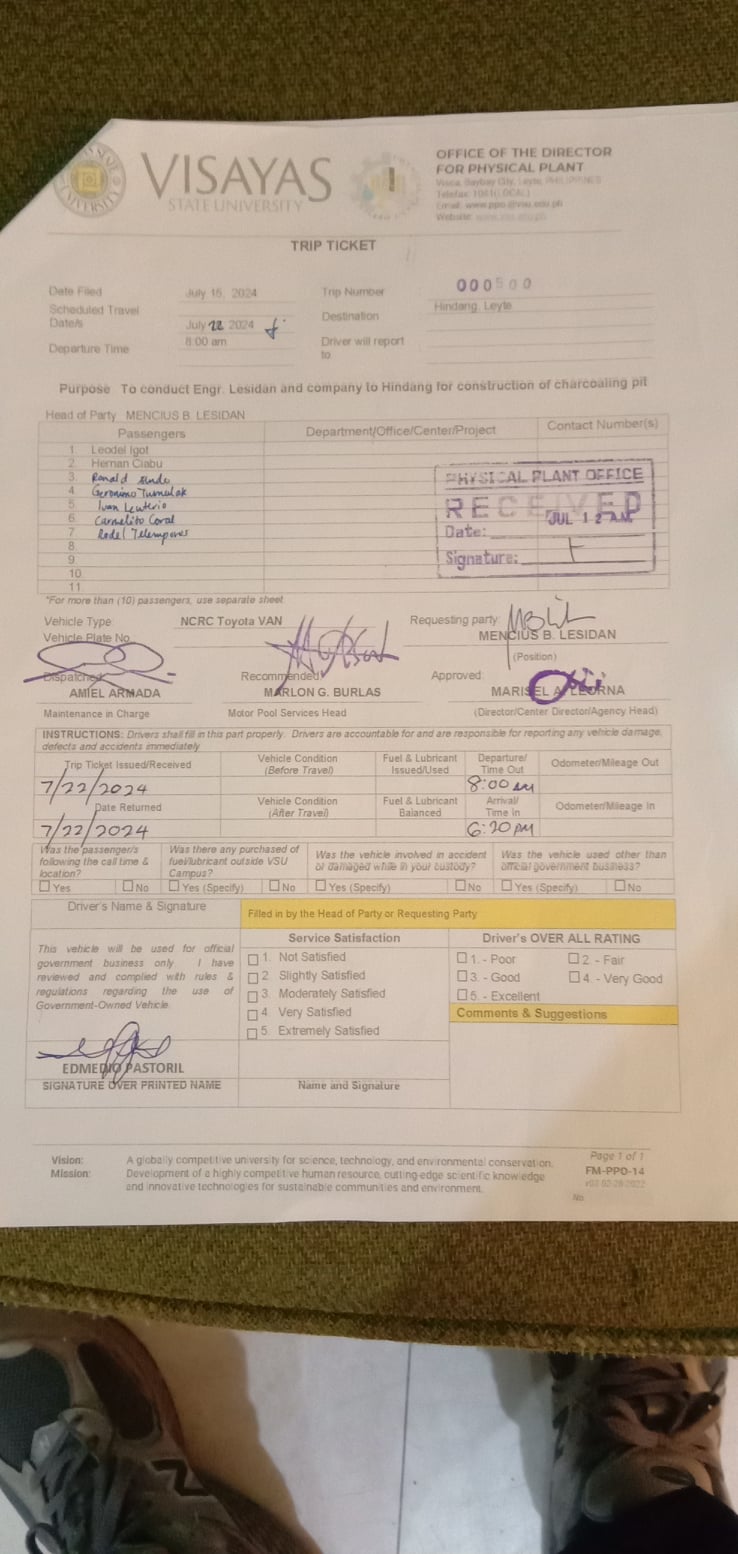 VISAYAS
STATE UNIVERSITY
OFFICE OF THE DIRECTOR
FOR PHYSICAL PLANT
Visca, Baybay City, Leyte, PHILIPPINES
Email: www.ppo@vsu.edu.ph
Website:
TRIP TICKET
Date Filed July 15, 2024 Trip Number 000500
Scheduled Travel Date/s July 22 2024 Destination Hindang, Leyte
Departure Time 8:00 am Driver will report to
Purpose To conduct Engr. Lesidan and company to Hindang for construction of charcoaling pit
Head of Party MENCIUS B. LESIDAN
Passengers Department/Office/Center/Project Contact Number(s)
1. Leodel Igot
2. Hernan Ciabu
3. Ronald
4. Geronimo Tumulak
5. Ivan
6. Carmelito Coral
7. Rodel
8.
9.
10.
11.
PHYSICAL PLANT OFFICE
RECEIVED
JUL 1
Date:
Signature:
*For more than (10) passengers, use separate sheet.
Vehicle Type: NCRC Toyota VAN Requesting party:
Vehicle Plate No. MENCIUS B. LESIDAN
(Position)
Dispatched: Recommended: Approved:
AMIEL ARMADA MARLON G. BURLAS MARISEL A. LEORNA
Maintenance in Charge Motor Pool Services Head (Director/Center Director/Agency Head)
INSTRUCTIONS: Drivers shall fill in this part properly. Drivers are accountable for and are responsible for reporting any vehicle damage,
defects and accidents immediately
Trip Ticket Issued/Received Vehicle Condition (Before Travel) Fuel & Lubricant Issued/Used Departure/ Time Out Odometer/Mileage Out
7/22/2024 8:00 am
Date Returned Vehicle Condition (After Travel) Fuel & Lubricant Balanced Arrival/ Time In Odometer/Mileage In
7/22/2024 PM
Was the passenger/s following the call time & location? Was there any purchased of fuel/lubricant outside VSU Campus? Was the vehicle involved in accident or damaged while in your custody? Was the vehicle used other than official government business?
Yes No Yes (Specify) No Yes (Specify) No Yes (Specify) No
Driver's Name & Signature
Filled in by the Head of Party or Requesting Party
This vehicle will be used for official
government business only. I have
reviewed and complied with rules &
regulations regarding the use of
Government-Owned Vehicle.
EDMEDIO PASTORIL
SIGNATURE OVER PRINTED NAME
Service Satisfaction
1. Not Satisfied
2. Slightly Satisfied
3. Moderately Satisfied
4. Very Satisfied
5. Extremely Satisfied
Name and Signature
Driver's OVER ALL RATING
1. - Poor 2. - Fair
3. - Good 4. - Very Good
5. - Excellent
Comments & Suggestions
Vision: A globally competitive university for science, technology, and environmental conservation.
Mission: Development of a highly competitive human resource, cutting-edge scientific knowledge
and innovative technologies for sustainable communities and environment.
Page 1 of 1
FM-PPO-14
v03 02-28-2022
No.
N